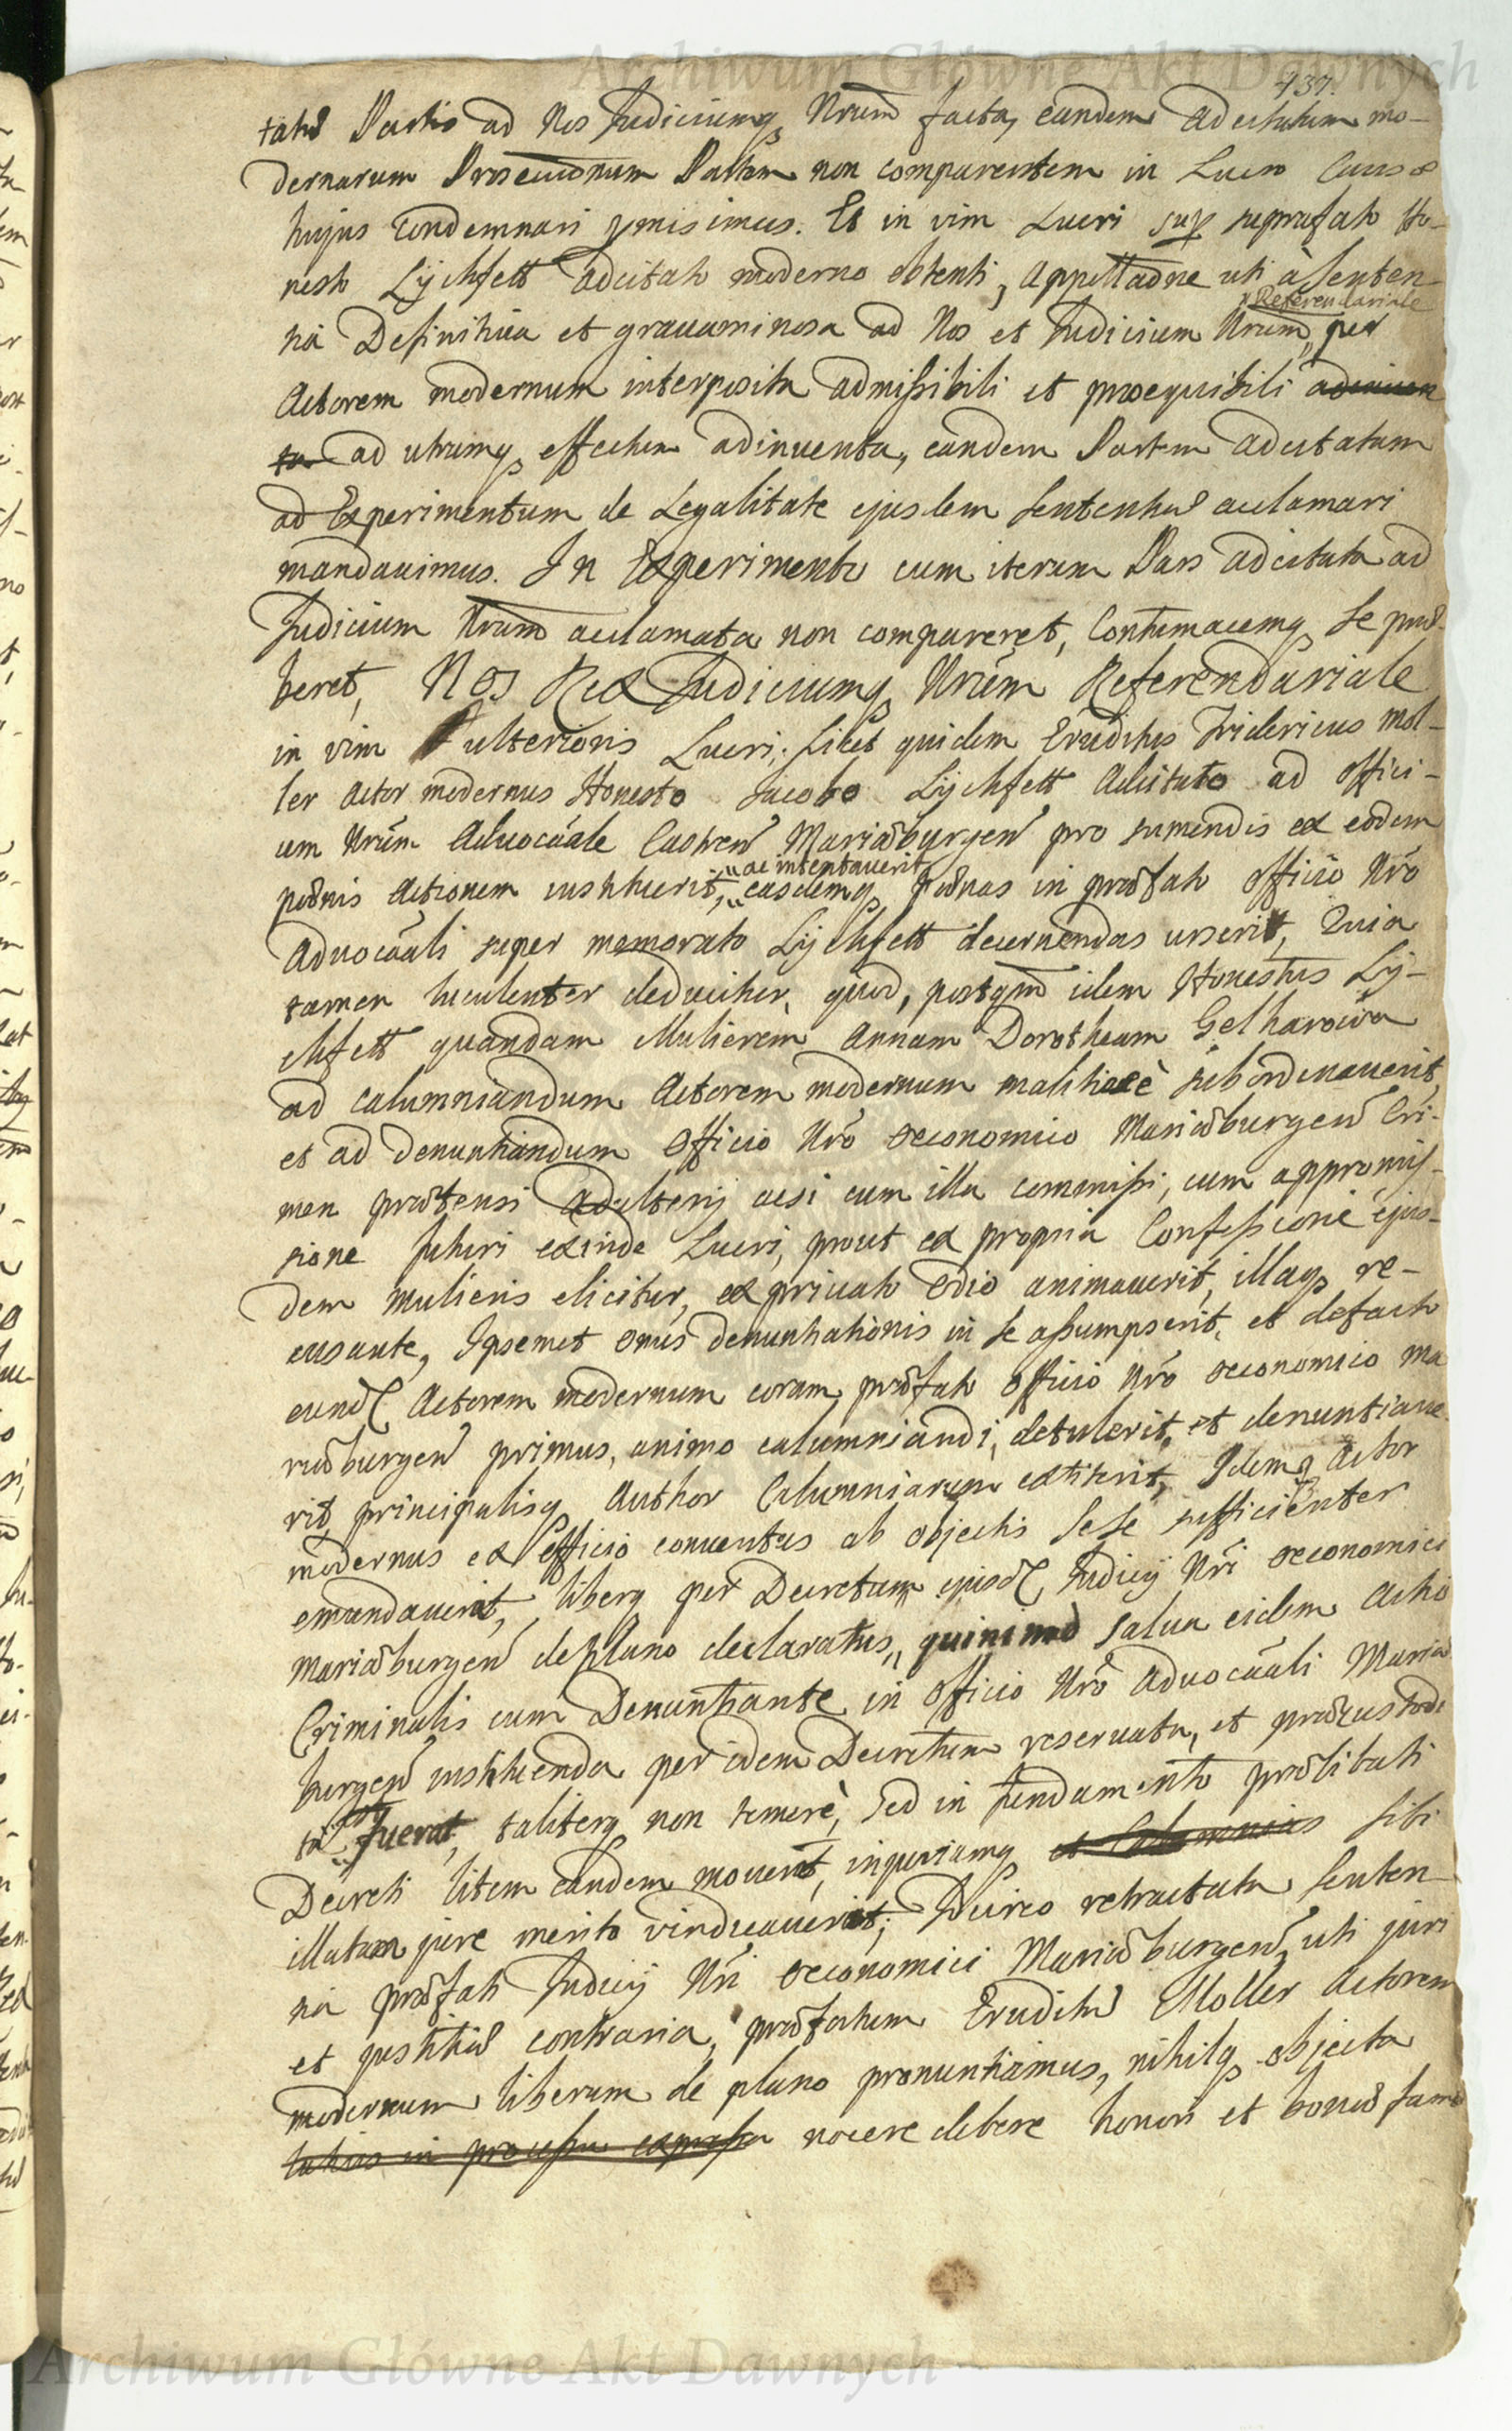 Archiwum Główne Akt Dawnych
437.
tatæ Partis ad Nos Judiciumq Nrum facta, eandem adcitatam mo-
dernarum Prosecutionum Partem non comparentem in Lucro Causæ
hujus condemnari pmisimus. Et in vim Lucri sup suprafato Ho-
nesto Lychfett adcitato moderno obtenti, appellaone uti à Senten-
tia Definitiva et gravaminosa ad Nos et Judicium Nrum, Referendariale per
Actorem modernum interposita admissibili et prosequibili adinven
ta ad utrumq effectum adinventa, eandem Partem adcitatam
ad Experimentum de Legalitate ejusdem Sententiæ acclamari
mandavimus. In Experimento cum iterum Pars adcitata ad
Judicium Nrum acclamata non compareret, Contumacemq se præ-
beret, Nos Rex Judiciumq Nrum Referendariale
in vim ulterioris Lucri, licet quidem Eruditus Fridericus Mol-
ler Actor modernus Honesto Jacobo Lychfett Adcitato ad offici-
um Nrum Advocaale Castren Mariæburgen pro sumendis ex eodem
pœnis Actionem instituerit, ac intentaverit easdemq pœnas in præfato officio Nro
Advocaali super memorato Lychfett decernendas urserit, Quia
tamen luculenter deducitur, quod, postqm idem Honestus Ly-
chfett quandam Mulierem Annam Dorotheam Gelharowa
ad calumniandum Actorem modernum malitiose subordinaverit,
et ad denuntiandum Officio Nro œconomico Mariæburgen Cri-
men prætensi adulterij acsi cum illa commissi, cum appromis-
sione futuri exinde Lucri, prout ex propria Confessione ejus-
dem mulieris elicitur, ex privato odio animaverit, illaq re-
cusante, Ipsemet onus denuntiationis in se assumpserit, et defacto
eund Actorem modernum coram præfato officio Nro œconomico Ma
riæburgen primus, animo calumniandi, detulerit, et denuntiave-
rit, principalisq Author Calumniarum extiterit, Idemq Actor
modernus ex officio conventus ab objectis sese sufficienter
emundaverit, liberq per Decretum ejusd Judicij Nri œconomici
Mariæburgen de plano declaratus, quinimo salva eidem Actio
Criminalis cum Denuntiante in officio Nro Advocaali Mariæ
burgen instituenda per idem Decretum reservata, et præcustodi
ta fuerat, taliterq non temerè, sed in fundamento prælibati
Decreti litem eandem moverit, injuriamq et Calumnias sibi
illatam jure merito vindicaverit; Idcirco retractata Senten-
tia præfati Judicij Nri œconomici Mariæburgen, uti juri
et justitiæ contraria, præfatum Eruditu Moller Actorem
modernum liberum de plano pronuntiamus, nihilq objecta
in processu expressa nocere debere honori et bonæ famæ
Archiwum Główne Akt Dawnych